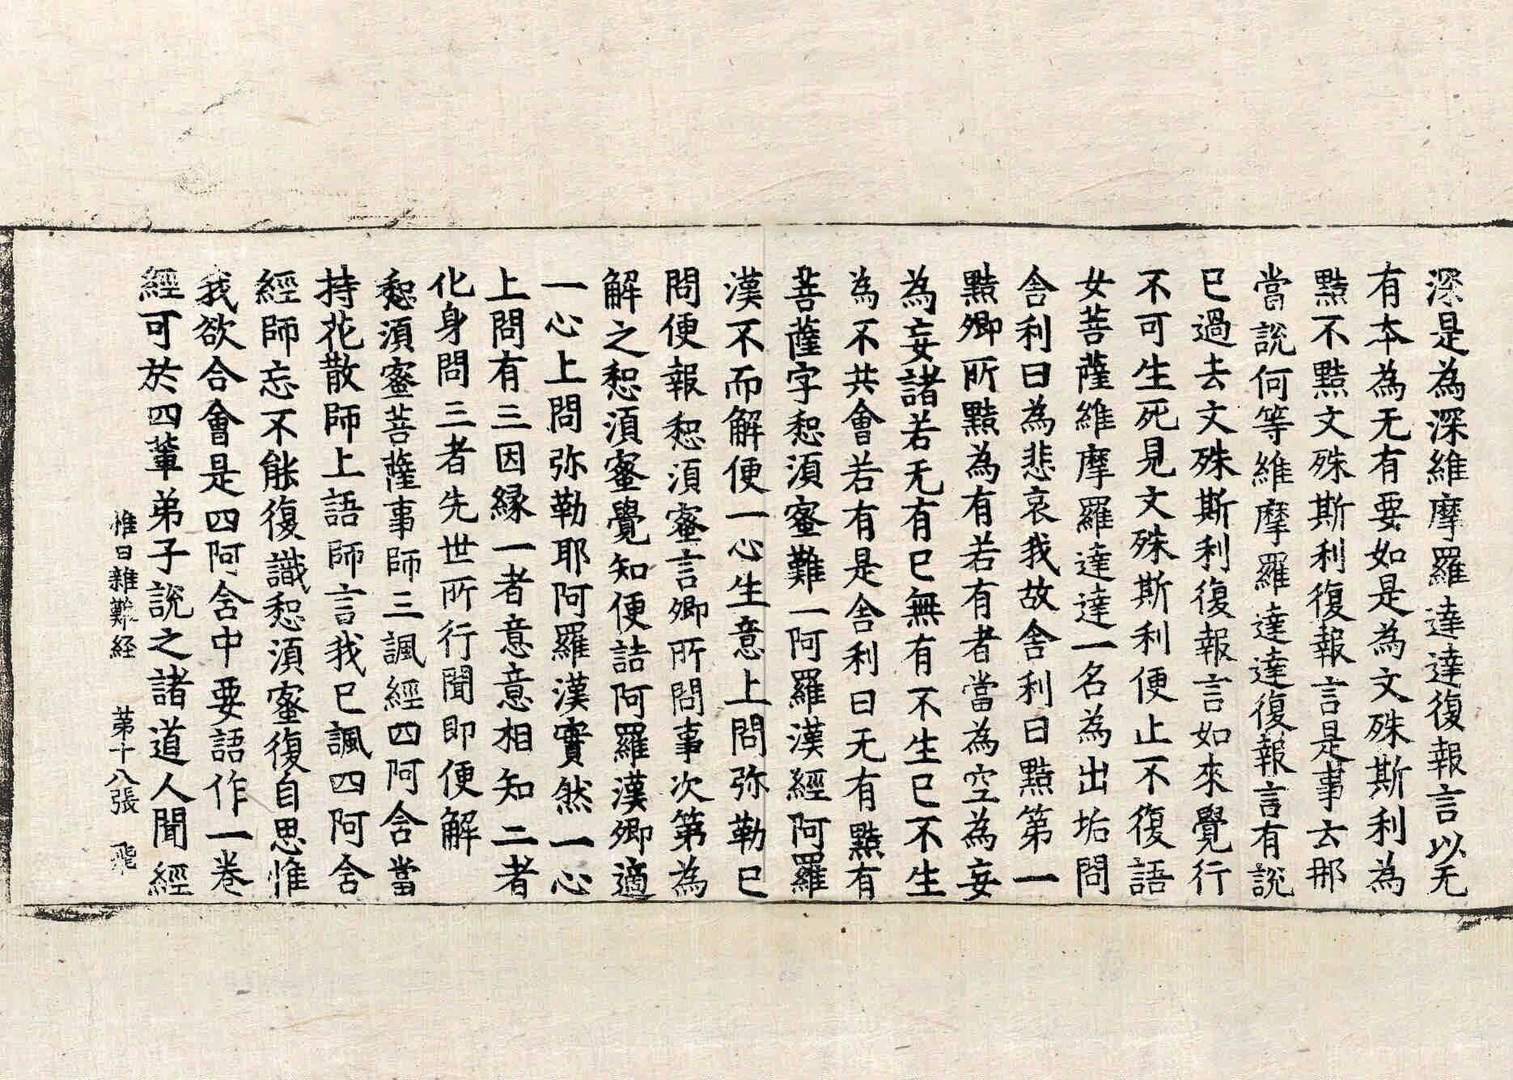 深是為深維摩羅達達復報言以无
有本為无有要如是為文殊斯利為
黠不黠文殊斯利復報言是事云那
當說何等維摩羅達達復報言有說
已過去文殊斯利復報言如來覺行
不可生死見文殊斯利便止不復語
女菩薩維摩羅達達一名為出垢問
舍利曰為悲哀我故舍利曰黠第一
黠卿所黠為有若有者當為空為妄
為妄諸若无有已無有不生已不生
為不共會若有是舍利曰无有黠有
菩薩字惒須蜜難一阿羅漢經阿羅
漢不而解便一心生意上問弥勒已
問便報惒須蜜言卿所問事次第為
解之惒須蜜覺知便詰阿羅漢卿適
一心上問弥勒耶阿羅漢實然一心
上問有三因緣一者意意相知二者
化身問三者先世所行聞即便解
惒須蜜菩薩事師三諷經四阿含當
持花散師上語師言我已諷四阿含
經師忘不能復識惒須蜜復自思惟
我欲合會是四阿含中要語作一卷
經可於四輩弟子說之諸道人聞經
惟曰雜難經　第十八張　飛